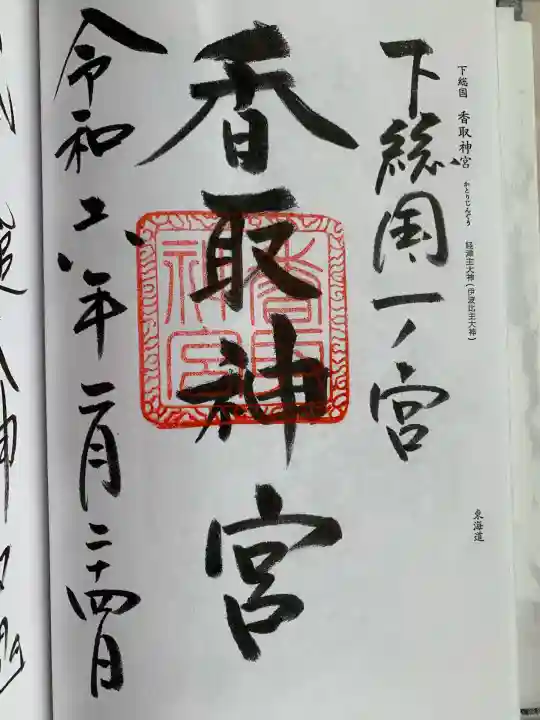 下総国 香取神宮 かとりじんぐう 経津主大神(伊波比主大神)
東海道
下総国一ノ宮
香取神宮
香取神宮
令和六年二月二十四日